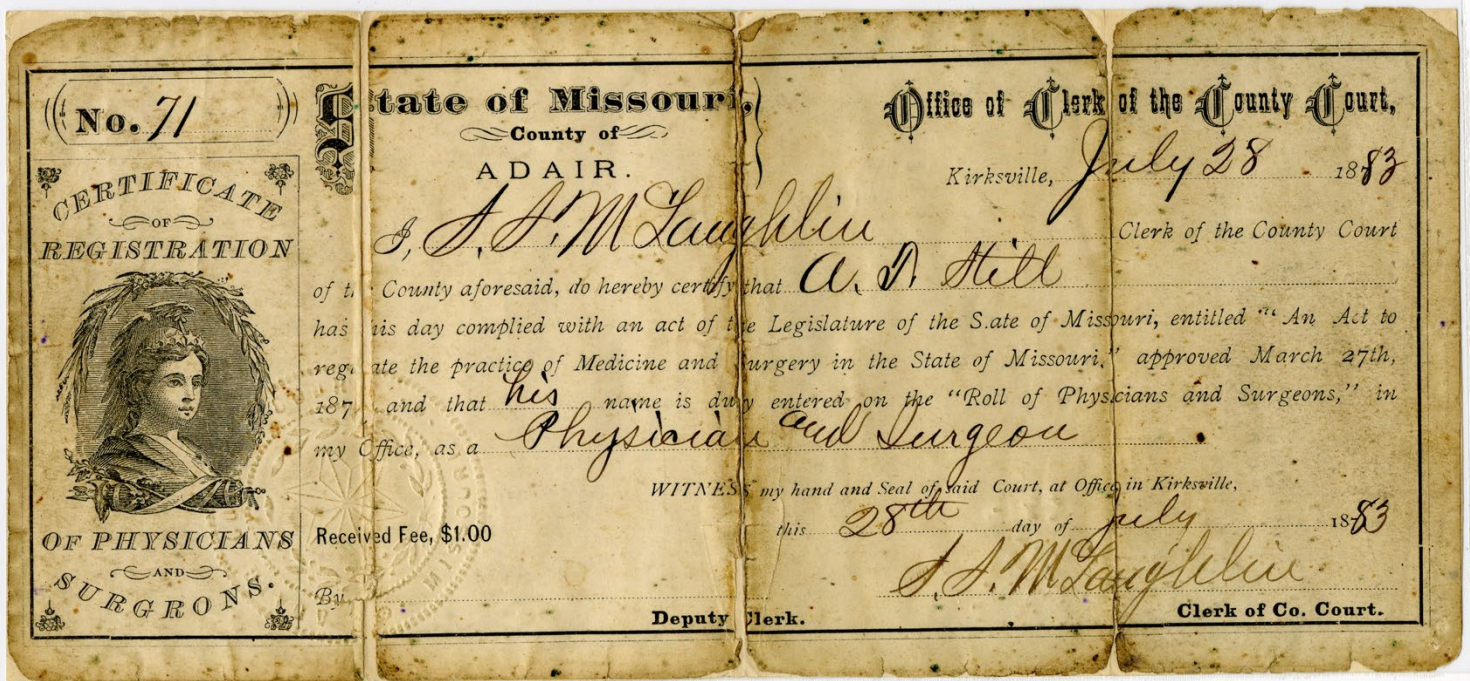 No. 71
CERTIFICATE
OF
REGISTRATION
OF PHYSICIANS
AND
SURGRONS.
State of Missouri,
County of
ADAIR.
Office of Clerk of the County Court,
Kirksville, July 28 1883
I, S. S. McLaughlin Clerk of the County Court
of the County aforesaid, do hereby certify that A. T. Still
has this day complied with an act of the Legislature of the S.ate of Missouri, entitled "An Act to
regulate the practice of Medicine and Surgery in the State of Missouri," approved March 27th,
187 and that his name is duly entered on the "Roll of Physicians and Surgeons," in
my Office, as a Physician and Surgeon
WITNESS my hand and Seal of said Court, at Office in Kirksville,
this 28th day of july 1883
Received Fee, $1.00
S. S. McLaughlin
By
Deputy Clerk.
Clerk of Co. Court.